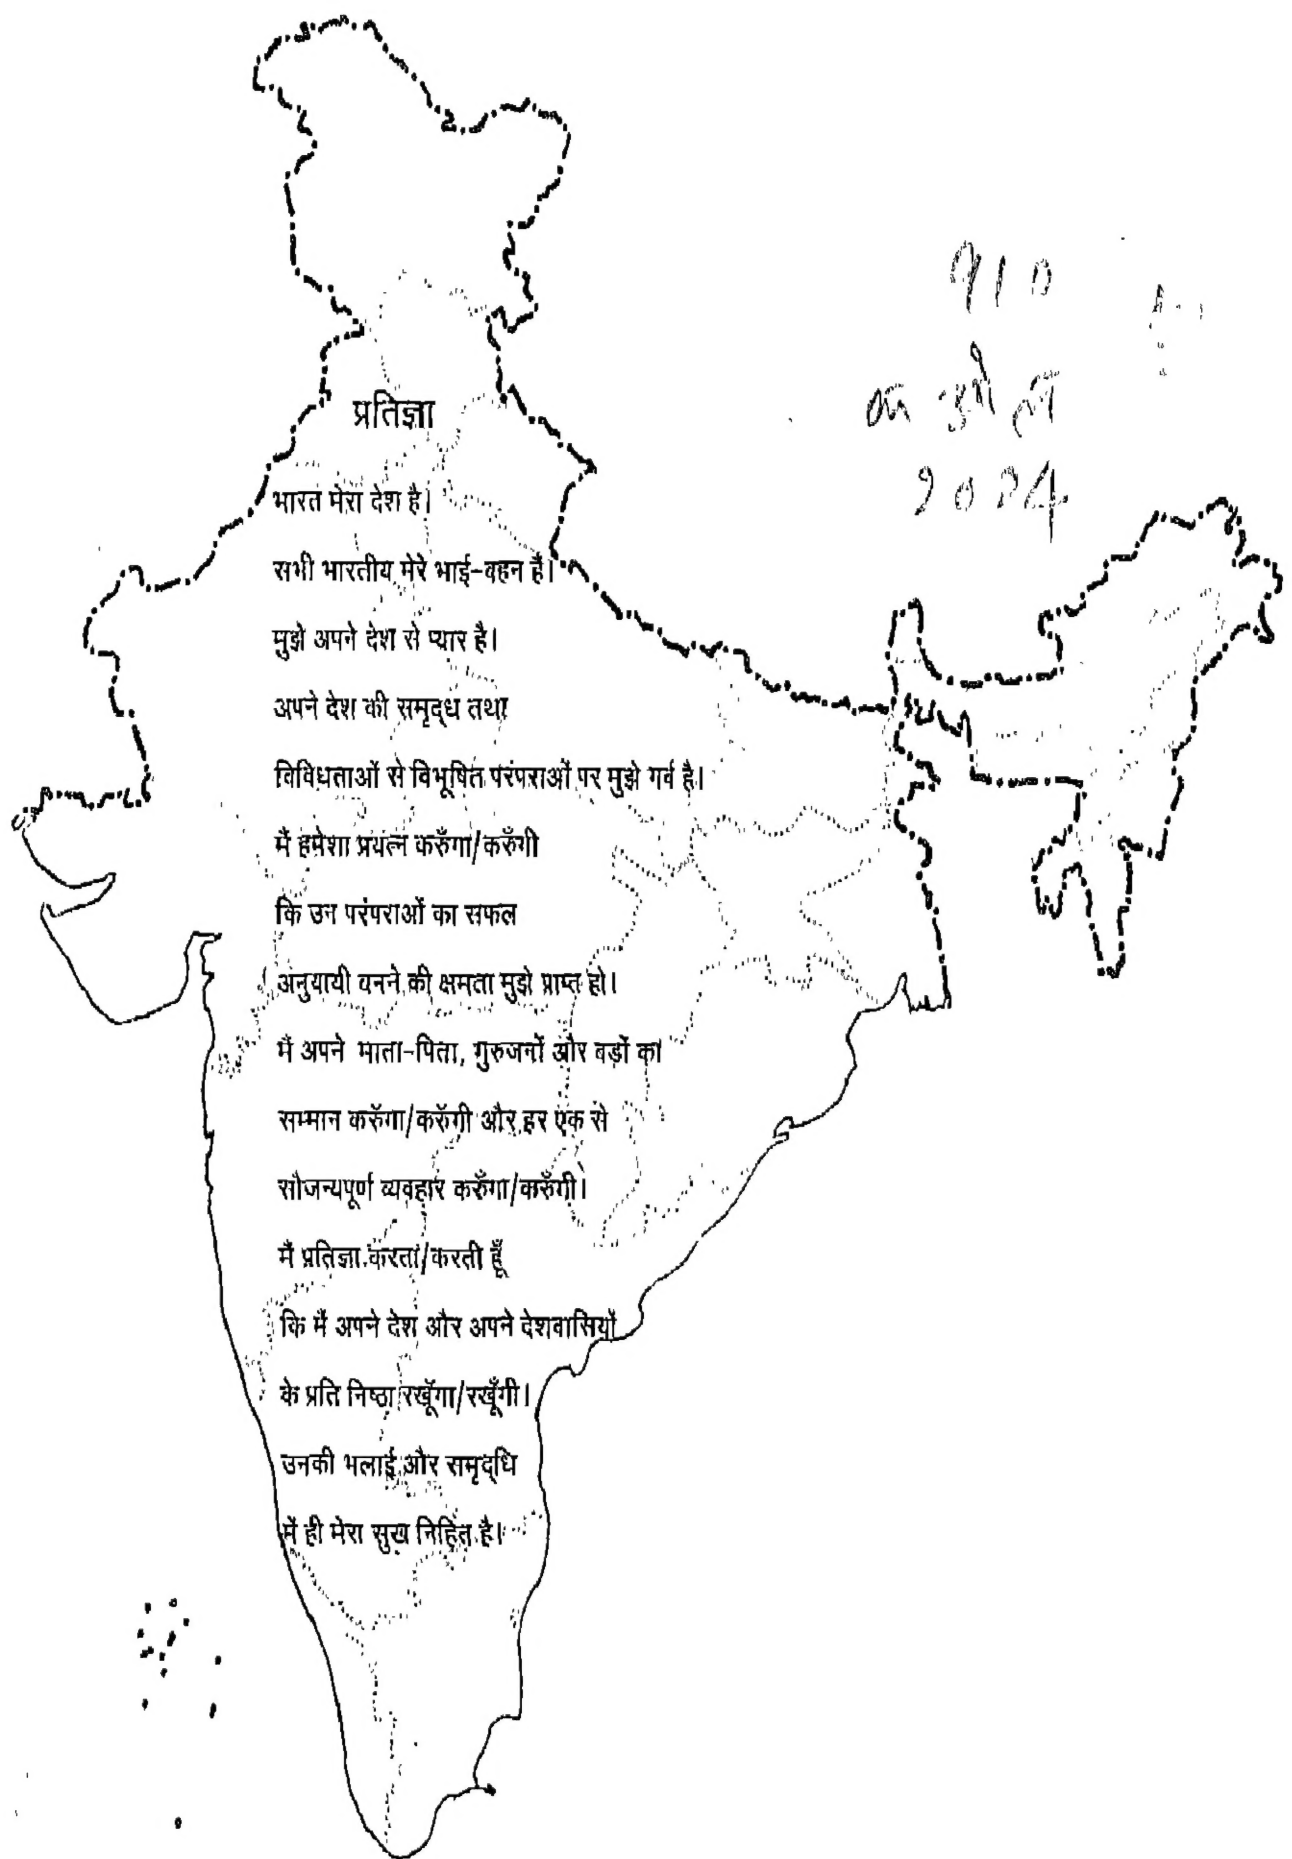 910
2024
प्रतिज्ञा
भारत मेरा देश है।
सभी भारतीय मेरे भाई-बहन हैं।
मुझे अपने देश से प्यार है।
अपने देश की समृद्ध तथा
विविधताओं से विभूषित परंपराओं पर मुझे गर्व है।
मैं हमेशा प्रयत्न करुँगा/करुँगी
कि उन परंपराओं का सफल
अनुयायी बनने की क्षमता मुझे प्राप्त हो।
मैं अपने माता-पिता, गुरुजनों और बड़ों का
सम्मान करुँगा/करुँगी और हर एक से
सौजन्यपूर्ण व्यवहार करुँगा/करुँगी।
मैं प्रतिज्ञा करता/करती हूँ
कि मैं अपने देश और अपने देशवासियों
के प्रति निष्ठा रखूँगा/रखूँगी।
उनकी भलाई और समृद्धि
में ही मेरा सुख निहित है।